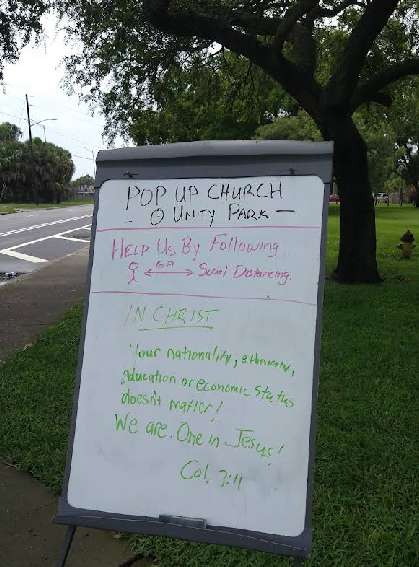 POP UP CHURCH
- @ UNITY PARK -
HELP US BY Following
6 ft Social Distancing
IN CHRIST
Your nationality, ethnicity,
education or economic status
doesn't matter!
We are One in Jesus!
Col. 3:11